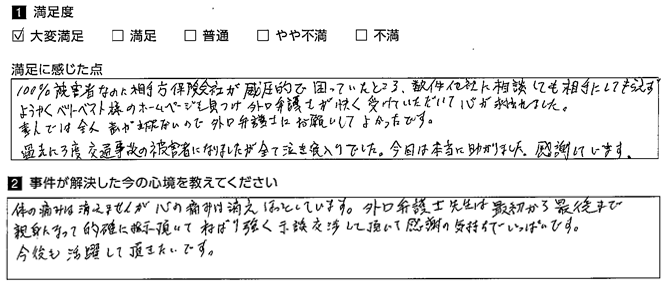 1 満足度
☑ 大変満足 □ 満足 □ 普通 □ やや不満 □ 不満
満足に感じた点
100%被害者なのに相手方保険会社が威圧的で困っていたところ、数件他社に相談しても相手にしてもらえず
ようやくベリーベスト様のホームページを見つけ 外口弁護士が快く受けていただいて心が救われました。
素人では全く歯が立たないので外口弁護士にお願いしてよかったです。
過去に3度交通事故の被害者になりましたが全て泣き寝入りでした。今回は本当に助かりました。感謝しています。
2 事件が解決した今の心境を教えてください
体の痛みは消えませんが心の痛みは消えほっとしています。外口弁護士先生は最初から最後まで
親身になって的確に指示頂いてねばり強く示談交渉して頂いて感謝の気持ちでいっぱいです。
今後も活躍して頂きたいです。